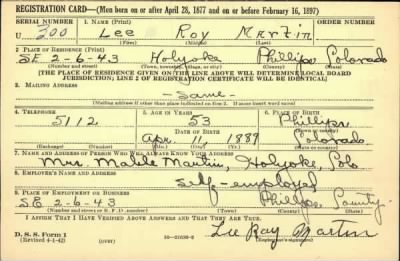 REGISTRATION CARD—(Men born on or after April 28, 1877 and on or before February 16, 1897)
SERIAL NUMBER 1. NAME (Print) ORDER NUMBER
U 300 Lee Roy Martin
(First) (Middle) (Last)
2. PLACE OF RESIDENCE (Print)
SE 2-6-43 Holyoke Phillips Colorado
(Number and street) (Town, township, village, or city) (County) (State)
[THE PLACE OF RESIDENCE GIVEN ON THE LINE ABOVE WILL DETERMINE LOCAL BOARD
JURISDICTION; LINE 2 OF REGISTRATION CERTIFICATE WILL BE IDENTICAL]
3. MAILING ADDRESS
Same
[Mailing address if other than place indicated on line 2. If same insert word same]
4. TELEPHONE 5. AGE IN YEARS 6. PLACE OF BIRTH
5112 53 Phillips
DATE OF BIRTH (Town or county)
Apr 11 1889 Colorado
(Exchange) (Number) (Mo.) (Day) (Yr.) (State or country)
7. NAME AND ADDRESS OF PERSON WHO WILL ALWAYS KNOW YOUR ADDRESS
Mrs. Martin, Holyoke, Colo
8. EMPLOYER'S NAME AND ADDRESS
self-employed
9. PLACE OF EMPLOYMENT OR BUSINESS
SE 2-6-43 Phillips County
(Number and street or R. F. D. number) (Town) (County) (State)
I AFFIRM THAT I HAVE VERIFIED ABOVE ANSWERS AND THAT THEY ARE TRUE.
D. S. S. Form 1
(Revised 4-1-42) (over) Lee Roy Martin
(Registrant's signature)